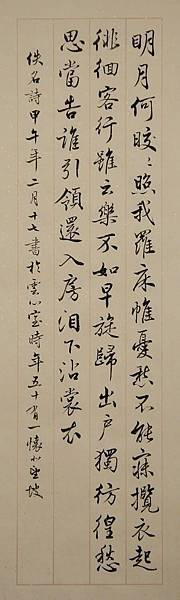 明月何皎〻照我羅床幃憂愁不能寐攬衣起
徘徊客行雖云樂不如早旋歸出戶獨彷徨愁
思當告誰引領還入房淚下沾裳衣
佚名詩甲午年二月十七書於雲心室時年五十有一懷小望坡